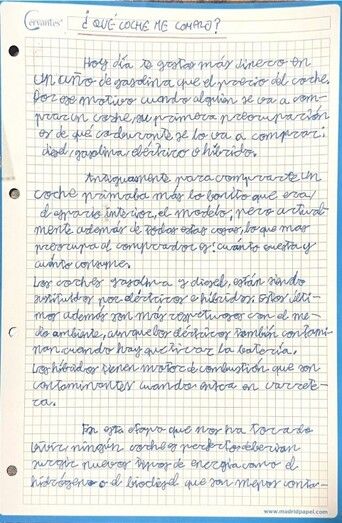 Cervantes
¿QUÉ COCHE ME COMPRO?
Hoy día te gastas más dinero en
un año de gasolina que el precio del coche.
Por ese motivo cuando alguien se va a com-
prar un coche, su primera preocupación
es de qué carburante se lo va a comprar:
diesel, gasolina eléctrico o híbrido.
Antiguamente para comprarte un
coche primaba más lo bonito que era,
el espacio interior, el modelo; pero actual-
mente además de todas estas cosas, lo que más
preocupa al comprador es: cuánto cuesta y
cuánto consume.
Los coches gasolina y diesel, están siendo
sustituidos por eléctricos e híbridos estos últi-
mos además son más respetuosos con el me-
dio ambiente, aunque los eléctricos también contami-
nan cuando hay que tirar la batería.
Los híbridos tienen motor de combustión que son
contaminantes cuando entra en carrete-
ra.
En esta etapa que nos ha tocado
vivir, ningún coche es perfecto deberían
surgir nuevos tipos de energía como el
hidrógeno o el biodiesel que son menos conta-
www.madridpapel.com